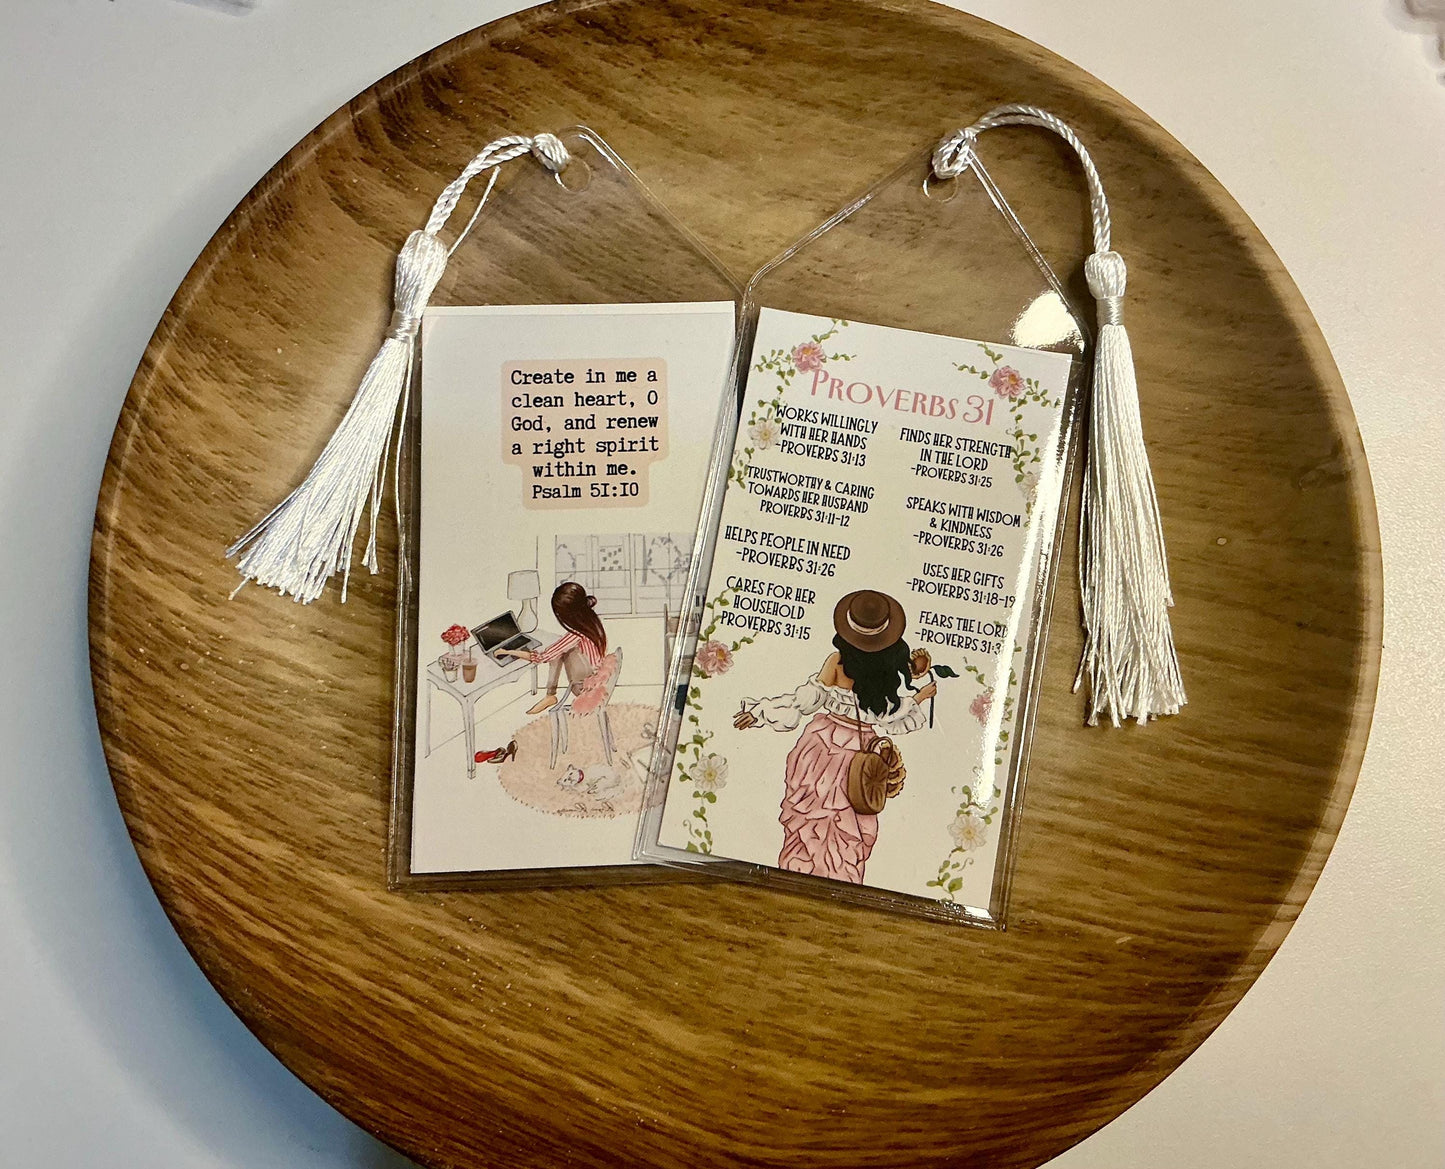 Create in me a
clean heart, O
God, and renew
a right spirit
within me.
Psalm 51:10
PROVERBS 31
WORKS WILLINGLY
WITH HER HANDS
-PROVERBS 31:13
TRUSTWORTHY & CARING
TOWARDS HER HUSBAND
PROVERBS 31:11-12
HELPS PEOPLE IN NEED
-PROVERBS 31:26
CARES FOR HER
HOUSEHOLD
PROVERBS 31:15
FINDS HER STRENGTH
IN THE LORD
-PROVERBS 31:25
SPEAKS WITH WISDOM
& KINDNESS
-PROVERBS 31:26
USES HER GIFTS
-PROVERBS 31:18-19
FEARS THE LORD
-PROVERBS 31:3